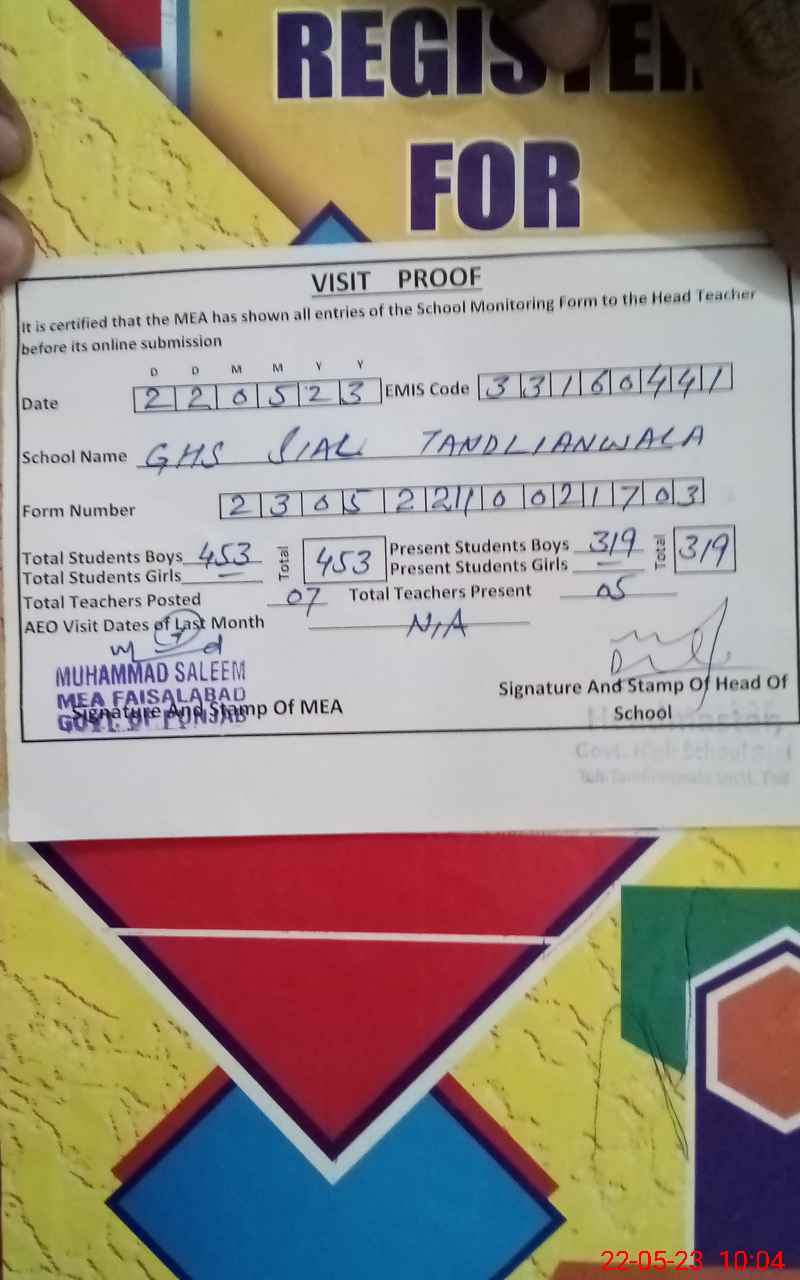 REGISTER
FOR
VISIT PROOF
It is certified that the MEA has shown all entries of the School Monitoring Form to the Head Teacher
before its online submission
D D M M Y Y
Date 2 2 0 5 2 3 EMIS Code 3 3 1 6 0 4 4 1
School Name GHS SIAL TANDLIANWALA
Form Number
Total Students Boys 453 Total 453 Present Students Boys 319 Total 319
Total Students Girls — Present Students Girls —
Total Teachers Posted 07 Total Teachers Present 05
AEO Visit Dates of Last Month N/A
MUHAMMAD SALEEM
MEA FAISALABAD
GOVT. OF PUNJAB
Signature And Stamp Of MEA
Signature And Stamp Of Head Of
School
Headmaster,
Govt. High School
22-05-23 10:04